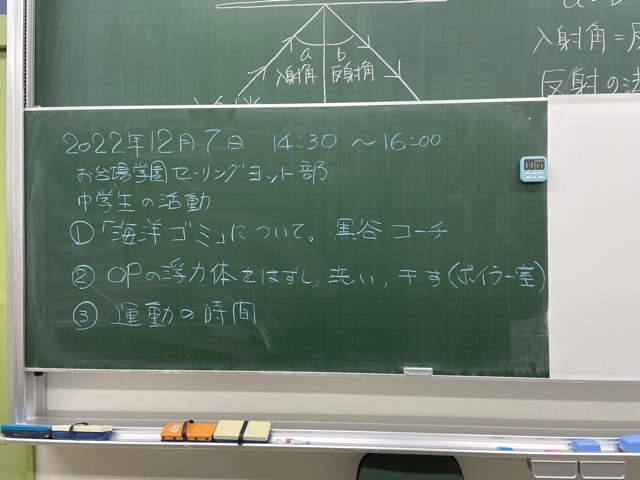 a b
入射角 反射角
入射角=反
反射の法
2022年12月7日 14:30 ~16:00
お台場学園セーリングヨット部
中学生の活動
① 「海洋ゴミ」について。 黒谷 コーチ
② OPの浮力体をはずし, 洗い, 干す(ボイラー室)
③ 運動の時間